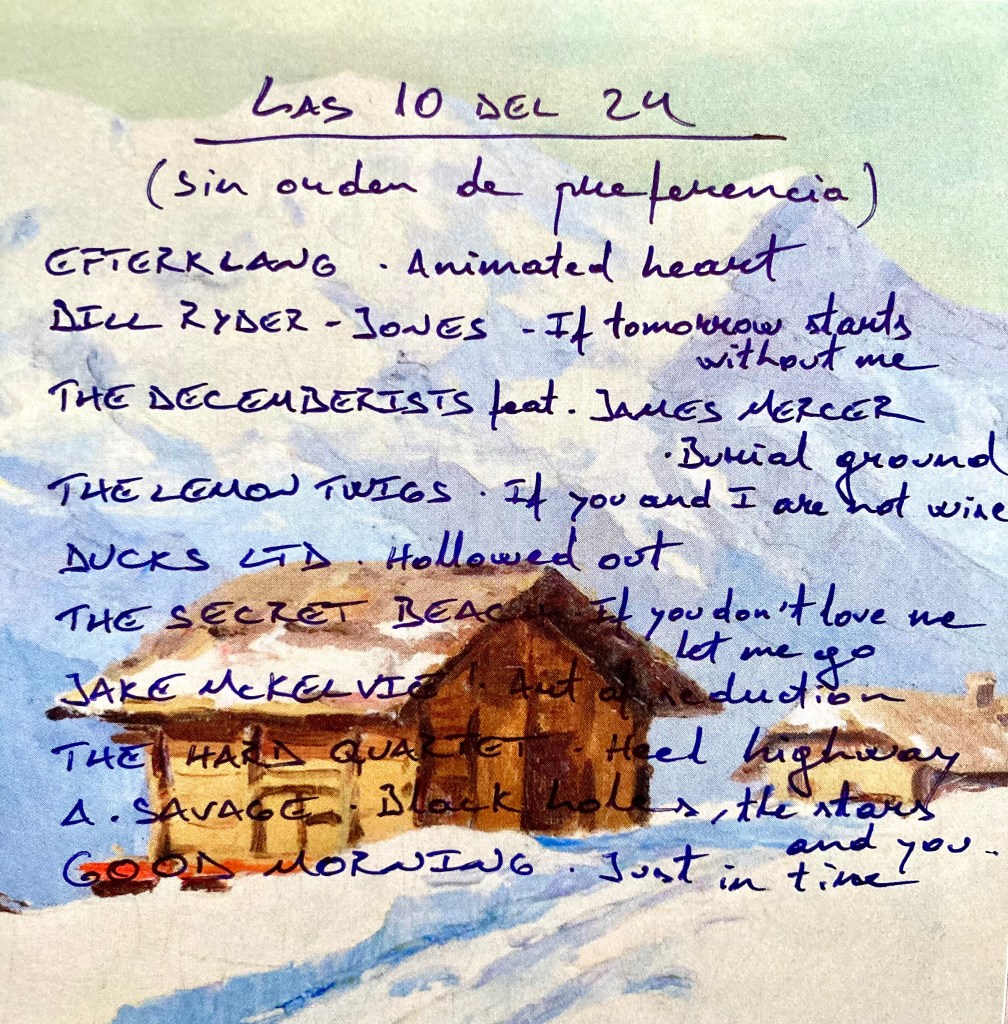 LAS 10 DEL 24
(sin orden de preferencia)
EFTERKLANG . Animated heart
BILL RYDER-JONES - If tomorrow starts
without me
THE DECEMBERISTS feat. JAMES MERCER
. Burial ground
THE LEMON TWIGS . If you and I are not wise
DUCKS LTD . Hollowed out
THE SECRET BEACH . If you don't love me
let me go
JAKE McKELVIE . Art of seduction
THE HARD QUARTET . Heel highway
A. SAVAGE . Black holes, the stars
and you.
GOOD MORNING . Just in time